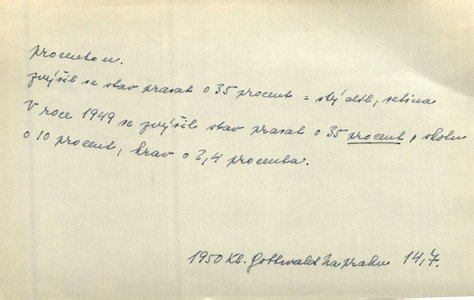 procento n.
zvýšil se stav prasat o 35 procent = stý díl, setina
V roce 1949 se zvýšil stav prasat o 35 procent, skotu
o 10 procent, krav o 2,4 procenta.
1950 Kl. Gottwald Na prahu 14,7.